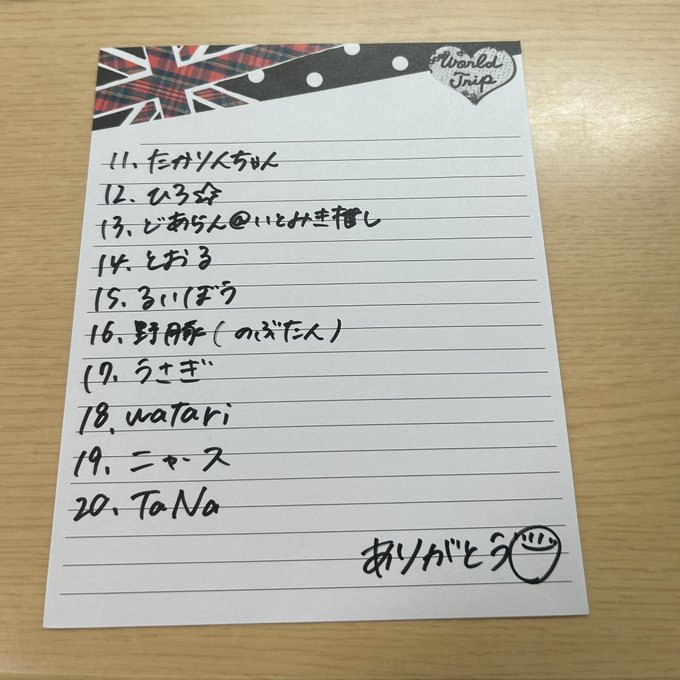 World
Trip
11. たかりんちゃん
12. ひろ☆
13. どあらん@いとみき推し
14. とおる
15. るいぼう
16. 野豚(のぶたん)
17. うさぎ
18. watari
19. ニャース
20. TaNa
ありがとう